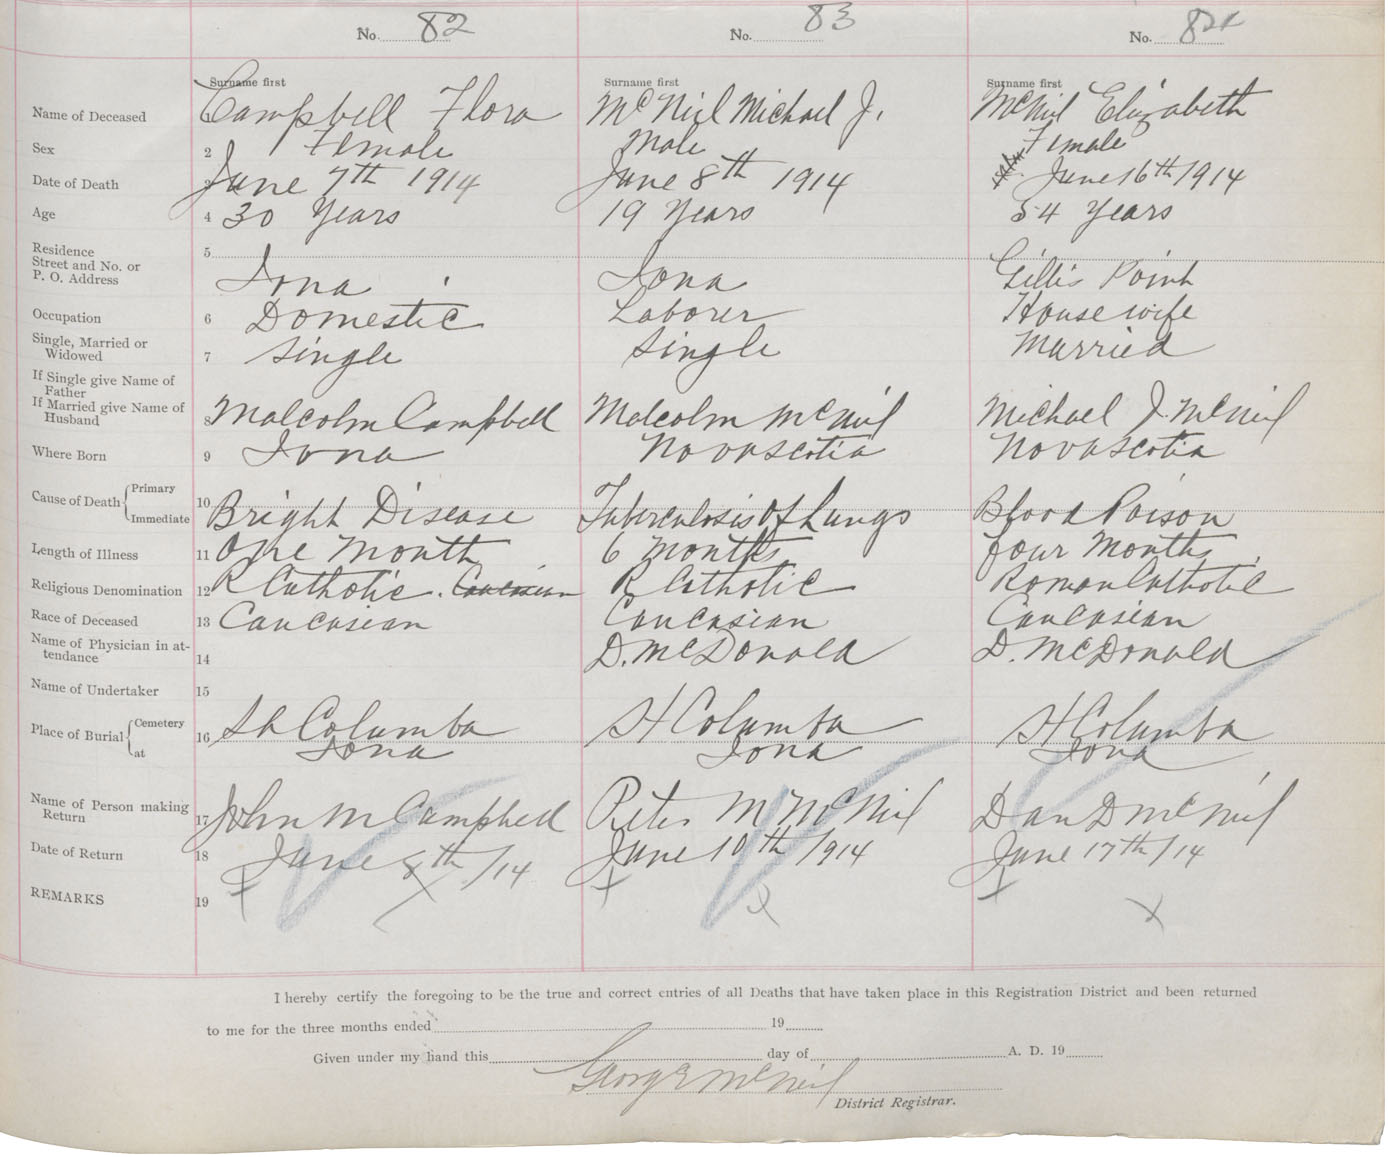 No. 82 No. 83 No. 84
Surname first Surname first Surname first
Name of Deceased 1 Campbell Flora McNeil Michael J. McNeil Elizabeth
Sex 2 Female Male Female
Date of Death 3 June 7th 1914 June 8th 1914 June 16th 1914
Age 4 30 Years 19 Years 54 Years
Residence
Street and No. or
P. O. Address 5 Iona Iona Gillis Point
Occupation 6 Domestic Laborer House wife
Single, Married or
Widowed 7 Single Single Married
If Single give Name of
Father
If Married give Name of
Husband 8 Malcolm Campbell Malcolm McNeil Michael J. McNeil
Where Born 9 Iona Nova Scotia Nova Scotia
Cause of Death { Primary
Immediate 10 Bright Disease Tuberculosis Of Lungs Blood Poison
Length of Illness 11 One Month 6 Months Four Months
Religious Denomination 12 R Catholic. Caucasian R Catholic Roman Catholic
Race of Deceased 13 Caucasian Caucasian Caucasian
Name of Physician in at-
tendance 14 D. McDonald D. McDonald
Name of Undertaker 15
Place of Burial { Cemetery
at 16 St Columba St Columba St Columba
Iona Iona Iona
Name of Person making
Return 17 John M Campbell Peter M McNeil Dan D McNeil
Date of Return 18 June 8th /14 June 10th 1914 June 17th /14
REMARKS 19 x x x x x
I hereby certify the foregoing to be the true and correct entries of all Deaths that have taken place in this Registration District and been returned
to me for the three months ended 19
Given under my hand this day of A. D. 19
George McNeil
District Registrar.